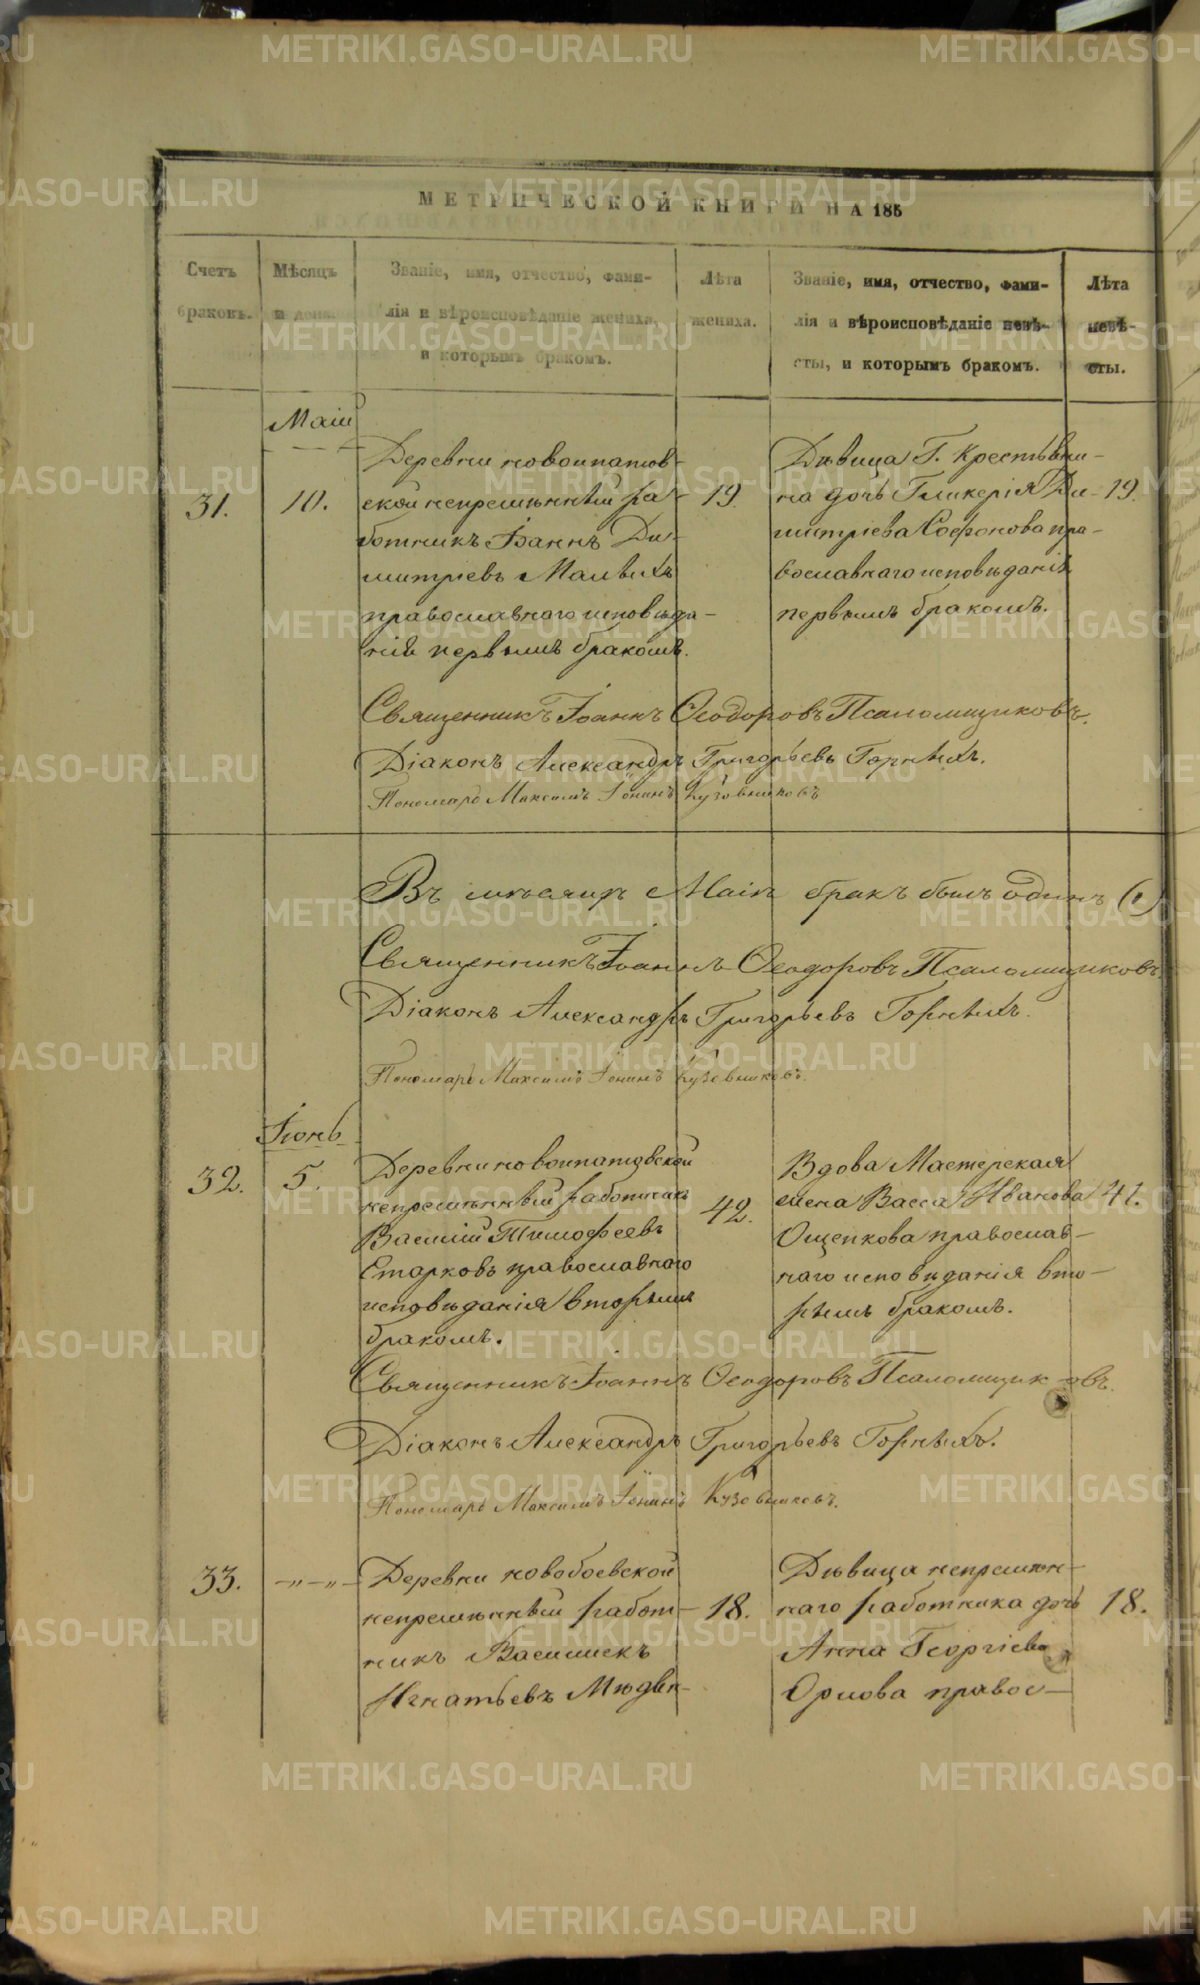 МЕТРИЧЕСКОЙ КНИГИ НА 185
Счетъ браковъ.
Мѣсяцъ и день.
Званіе, имя, отчество, фами-
лія и вѣроисповѣданіе жениха,
и которымъ бракомъ.
Лѣта жениха.
Званіе, имя, отчество, фами-
лія и вѣроисповѣданіе невѣ-
сты, и которымъ бракомъ.
Лѣта невѣ-
сты.
Маій
31.
10.
Деревни новоипатов-
ской непремѣнный ра-
ботникъ Іоаннъ Ди-
митріевъ Малыхъ
православнаго исповѣда-
нія первымъ бракомъ.
19.
Дѣвица Г. Крестьяни-
на дочь Гликерія Ди-
митріева Софонова пра-
вославнаго исповѣданія
первымъ бракомъ.
19.
Священникъ Іоаннъ Ѳеодоровъ Псаломщиковъ.
Діаконъ Александръ Григорьевъ Горныхъ.
Пономарь Максимъ Іонинъ Кузовниковъ
Въ мѣсяцѣ Маіѣ бракъ былъ одинъ (1)
Священникъ Іоаннъ Ѳеодоровъ Псаломщиковъ.
Діаконъ Александръ Григорьевъ Горныхъ.
Пономарь Максимъ Іонинъ Кузовниковъ.
Іюнь
32.
5.
Деревни новоипатовской
непремѣнный работникъ
Василій Тимофеевъ
Старковъ православнаго
исповѣданія вторымъ
бракомъ.
42.
Вдова Мастерская
жена Васса Иванова
Ощепкова православ-
наго исповѣданія вто-
рымъ бракомъ.
41.
Священникъ Іоаннъ Ѳеодоровъ Псаломщиковъ.
Діаконъ Александръ Григорьевъ Горныхъ.
Пономарь Максимъ Іонинъ Кузовниковъ.
33.
-"-"-
Деревни новобоевской
непремѣнный работ-
никъ Василискъ
Игнатьевъ Мѣдвѣ-
18.
Дѣвица непремѣн-
наго работника дочь
Анна Георгіева
Орлова правос-
18.
METRIKI.GASO-URAL.RU